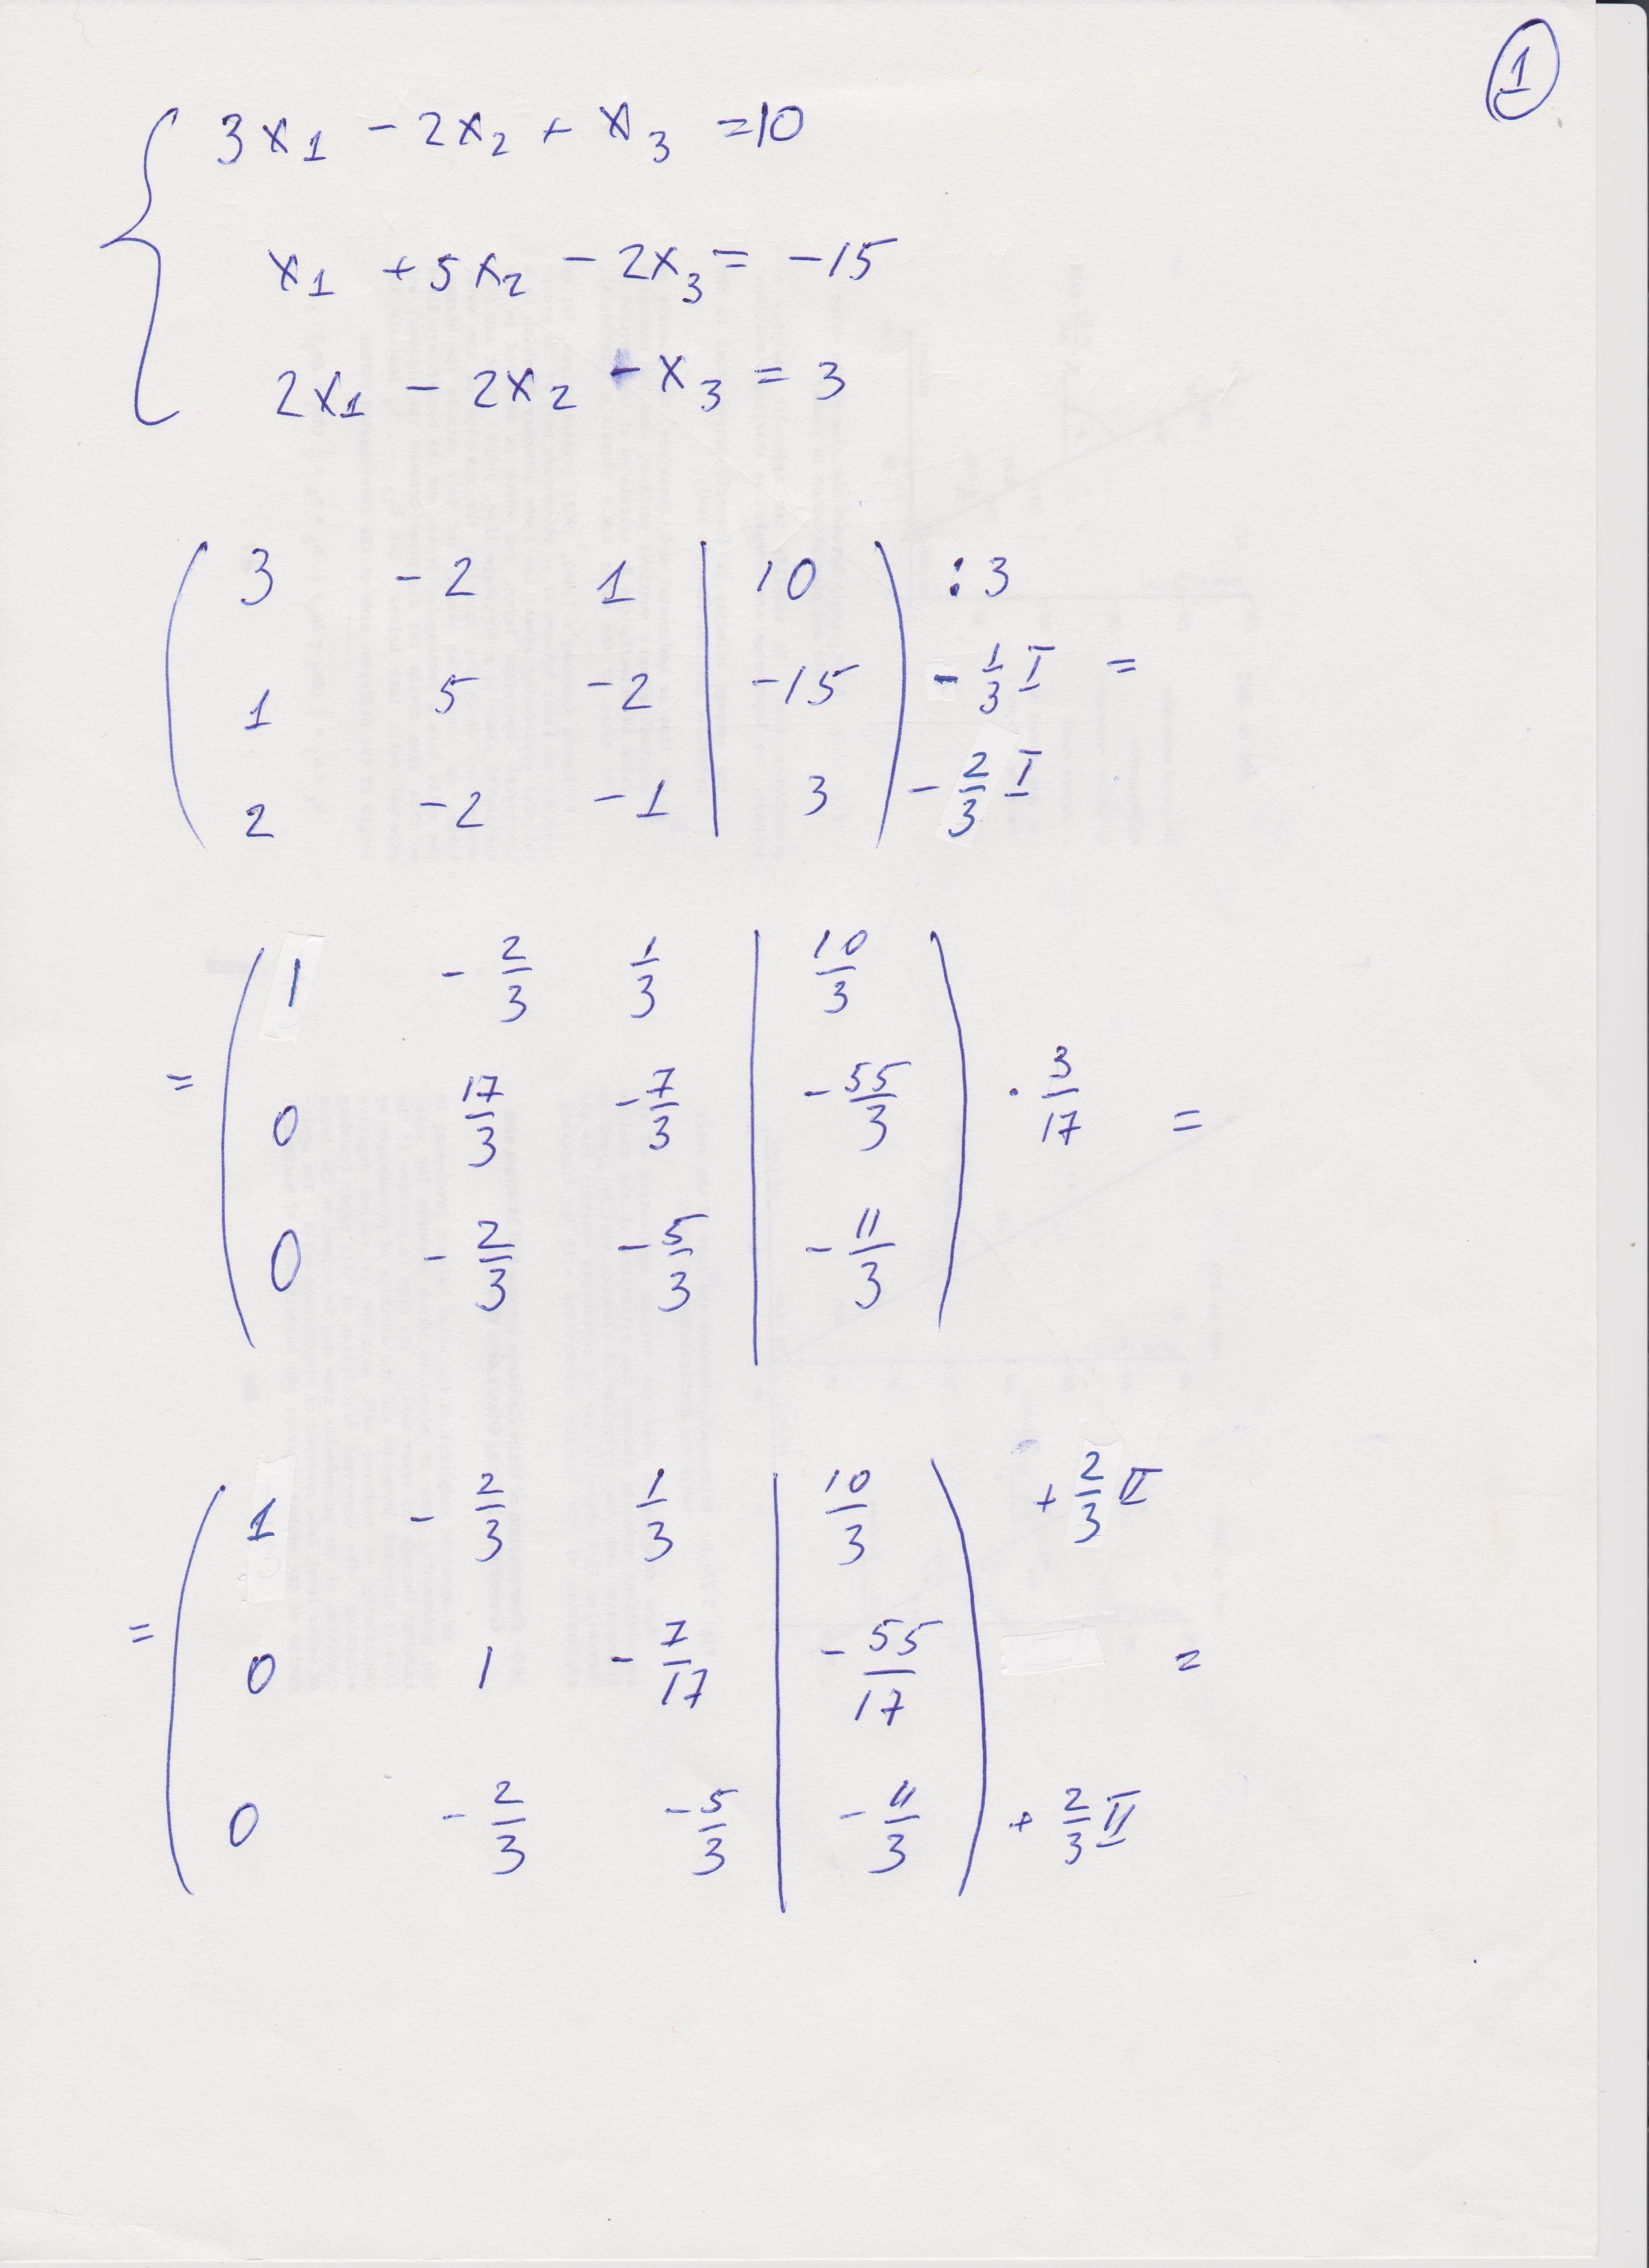 1
3x₁ - 2x₂ + x₃ = 10
x₁ + 5x₂ - 2x₃ = -15
2x₁ - 2x₂ - x₃ = 3
3 -2 1 | 10 : 3
1 5 -2 | -15 - 1/3 I =
2 -2 -1 | 3 - 2/3 I
1 - 2/3 1/3 | 10/3
= 0 17/3 - 7/3 | - 55/3 · 3/17 =
0 - 2/3 - 5/3 | - 11/3
1 - 2/3 1/3 | 10/3 + 2/3 II
= 0 1 - 7/17 | - 55/17 =
0 - 2/3 - 5/3 | - 11/3 + 2/3 II